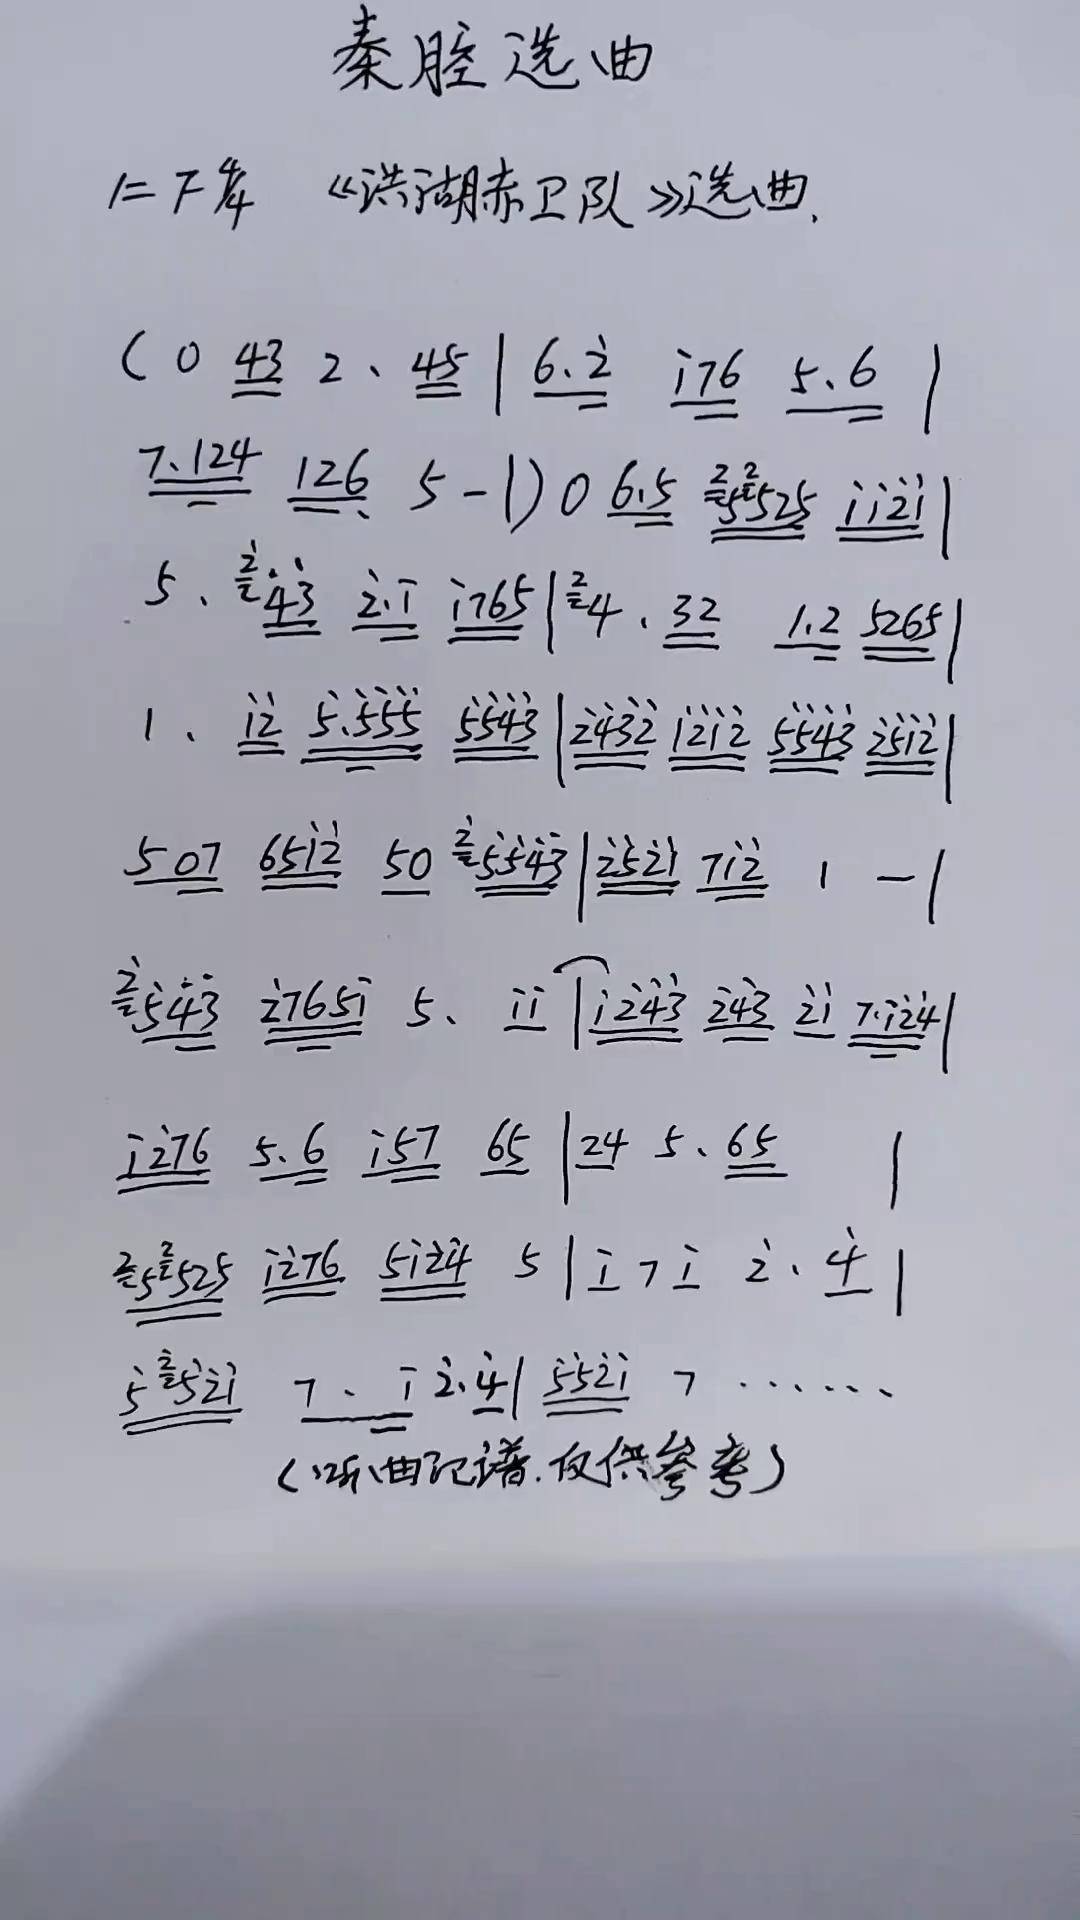 秦腔选曲
1=F 4/4 《洪湖赤卫队》选曲.
(0 43 2. 45 | 6.2̇ i̇76 5.6 |
7.124 126̣ 5 - | ) 0 6.5 ²5²525 i̇i̇2̇i̇ |
5. ²̇4̇3̇ 2̇.i̇ i̇765 | ²4. 32 1.2 5265 |
1. i̇2̇ 5̇.5̇5̇5̇ 5̇5̇4̇3̇ | 2̇4̇3̇2̇ i̇2̇i̇2̇ 5̇5̇4̇3̇ 2̇5̇i̇2̇ |
507 65i̇2̇ 50 ²̇5̇5̇4̇3̇ | 2̇5̇2̇i̇ 7i̇2̇ 1 - |
²̇5̇4̇3̇ 2̇765i̇ 5. i̇i̇ | i̇2̇4̇3̇ 2̇4̇3̇ 2̇i̇ 7.i̇2̇4̇ |
i̇2̇76 5.6 i̇57 65 | 24 5. 65 |
²5²525 i̇2̇76 5i̇2̇4̇ 5 | i̇ 7 i̇ 2̇. 4̇ |
5̇²̇5̇2̇i̇ 7. i̇ 2̇.4̇ | 5̇5̇2̇i̇ 7 ······
(听曲记谱.仅供参考)